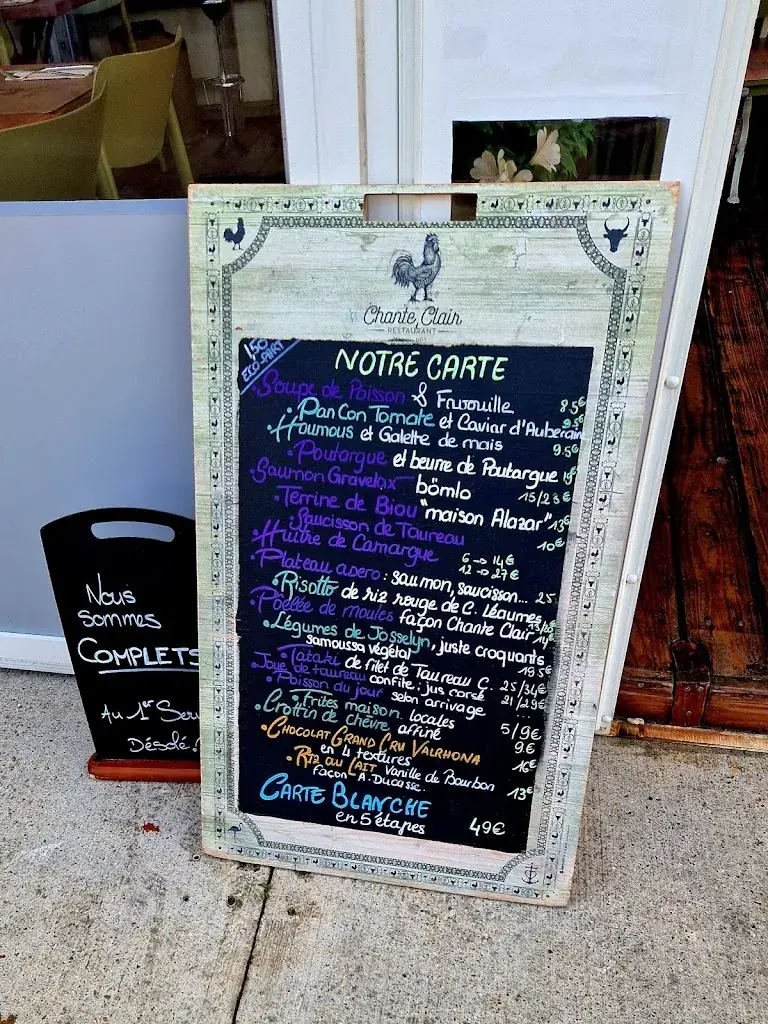 Chante Clair
RESTAURANT
1,50
ECO-PART
NOTRE CARTE
• Soupe de Poisson & Frusouille 8.5€
• Pan Con Tomate et Caviar d'Aubergin 9.5€
• Houmous et Galette de maïs 9.5€
• Poutargue et beurre de Poutargue
• Saumon Gravelax bömlo 15/28€
• Terrine de Biou "maison Alazar" 13€
• Saucisson de Taureau 10€
• Huître de Camargue 6 → 14€
12 → 27€
• Plateau apero : saumon, saucisson... 25
• Risotto de riz rouge de C. Légumes
• Poêlée de moules façon Chante Clair
• Légumes de Josselyn, juste croquants
samoussa végétal 19.5€
• Tataki de filet de Taureau C. 25/34€
• Joue de taureau confite, jus corsé 21/29€
• Poisson du jour selon arrivage ...
• Frites maison locales 5/9€
• Crottin de chèvre, affiné 9€
• CHOCOLAT GRAND CRU VALRHONA
en 4 textures 16€
• RIZ AU LAIT Vanille de Bourbon
façon A. Ducasse. 13€
CARTE BLANCHE
en 5 étapes 49€
Nous
sommes
COMPLETS
Au 1er Ser
Désolé!